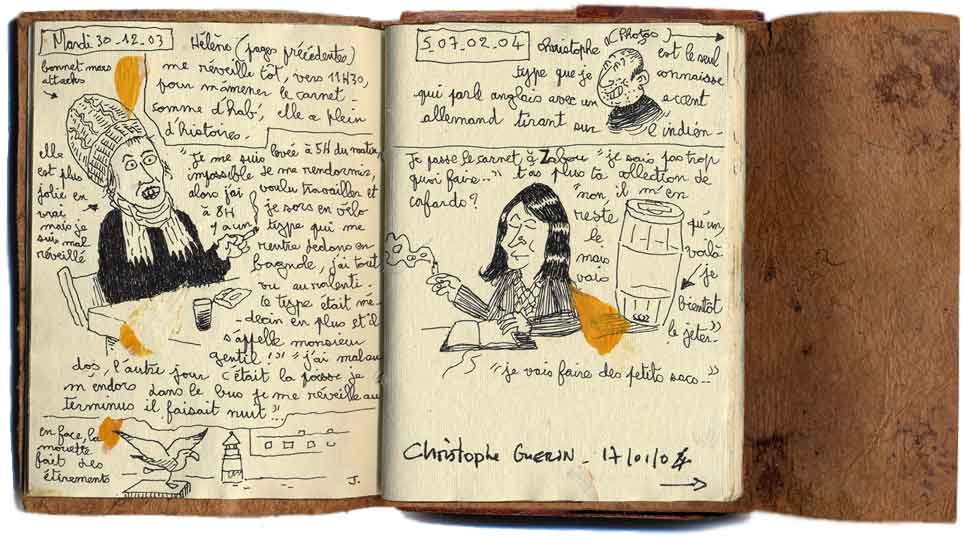 Mardi 30_12_03
Hélène (pages précédentes)
me réveille tôt, vers 11H30,
pour m'amener le carnet_
comme d'hab', elle a plein
d'histoires_
bonnet mars
attacks
elle
est plus
jolie en
vrai
mais je
suis mal
réveillé
"je me suis levée à 5H du matin,
impossible de me rendormir,
alors j'ai voulu travailler et
à 8H je sors en vélo
y a un type qui me
rentre dedans en
bagnole, j'ai tout
vu au ralenti_
le type était mé-
-decin en plus et il
s'appelle monsieur
gentil !" "j'ai mal au
dos, l'autre jour c'était la poisse je
m'endors dans le bus je me réveille au
terminus il faisait nuit..."
en face, la
mouette
fait des
étirements
J.
S_07_02_04
Christophe (Photos) est le seul
type que je connaisse
qui parle anglais avec un accent
allemand tirant sur l'indien_
Je passe le carnet à Zabou "je sais pas trop
quoi faire..." t'as plus ta collection de
cafards?
"non, il m'en
reste qu'un,
le voilà_
mais je
vais bientôt
le jeter"
"je vais faire des petits sacs..."
Christophe GUERIN_ 17/01/04